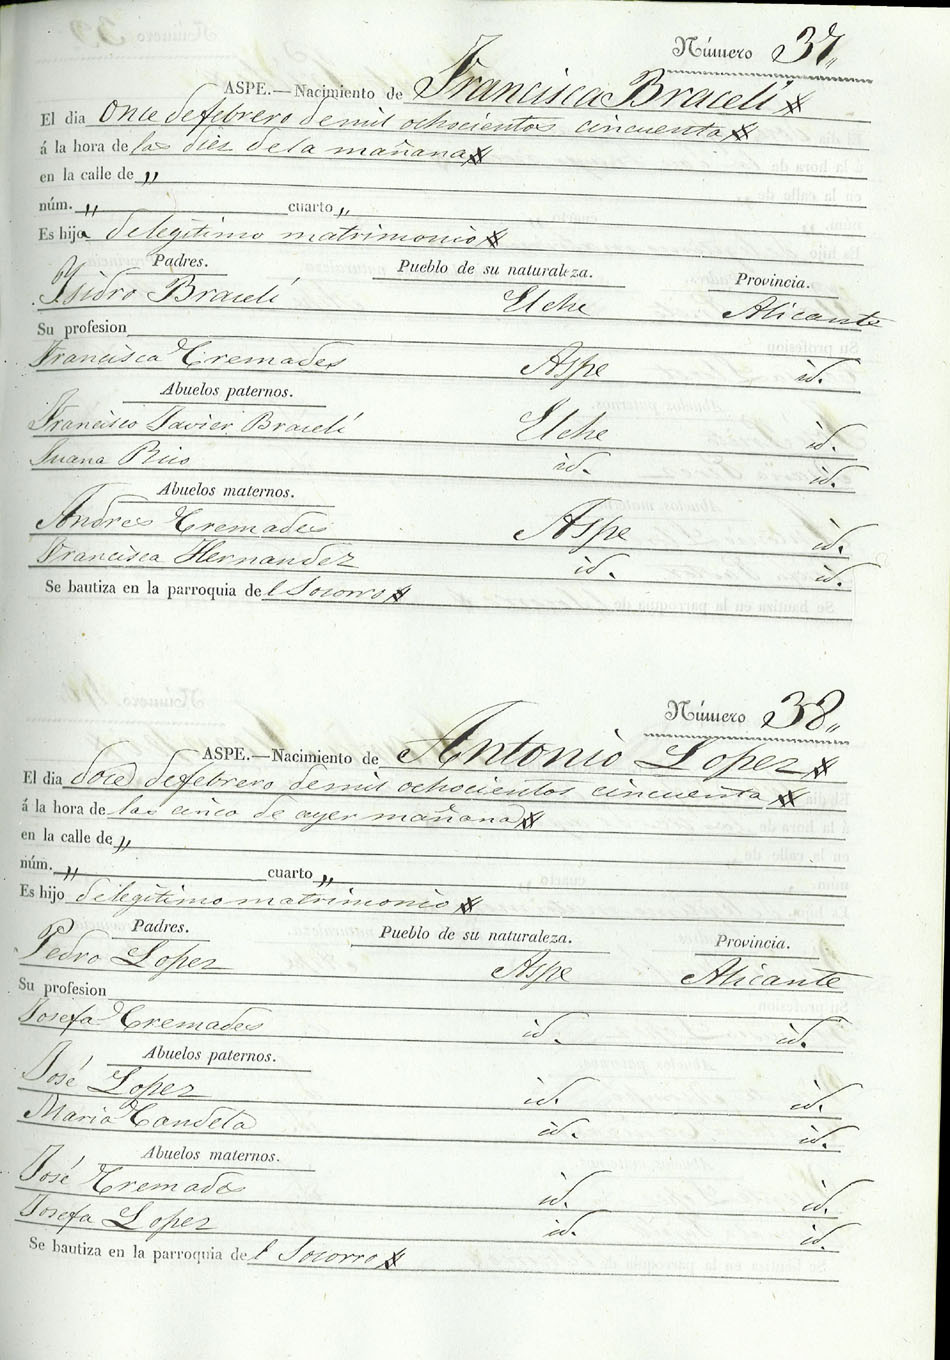 Número 37,,
ASPE.—Nacimiento de Francisca Bracelí
El dia Once de febrero de mil ochocientos cincuenta
á la hora de las diez de la mañana
en la calle de ,,
núm. ,, cuarto ,,
Es hija de legítimo matrimonio
Padres. Pueblo de su naturaleza. Provincia.
Ysidro Bracelí Elche Alicante
Su profesion
Francisca Cremades Aspe id.
Abuelos paternos.
Francisco Javier Bracelí Elche id.
Juana Rico id. id.
Abuelos maternos.
Andres Cremades Aspe id.
Francisca Hernandez id. id.
Se bautiza en la parroquia del Socorro
Número 38,,
ASPE.—Nacimiento de Antonio Lopez
El dia doce de febrero de mil ochocientos cincuenta
á la hora de las cinco de ayer mañana
en la calle de ,,
núm. ,, cuarto ,,
Es hijo de legítimo matrimonio
Padres. Pueblo de su naturaleza. Provincia.
Pedro Lopez Aspe Alicante
Su profesion
Josefa Cremades id. id.
Abuelos paternos.
José Lopez id. id.
Maria Candela id. id.
Abuelos maternos.
José Cremades id. id.
Josefa Lopez id. id.
Se bautiza en la parroquia del Socorro